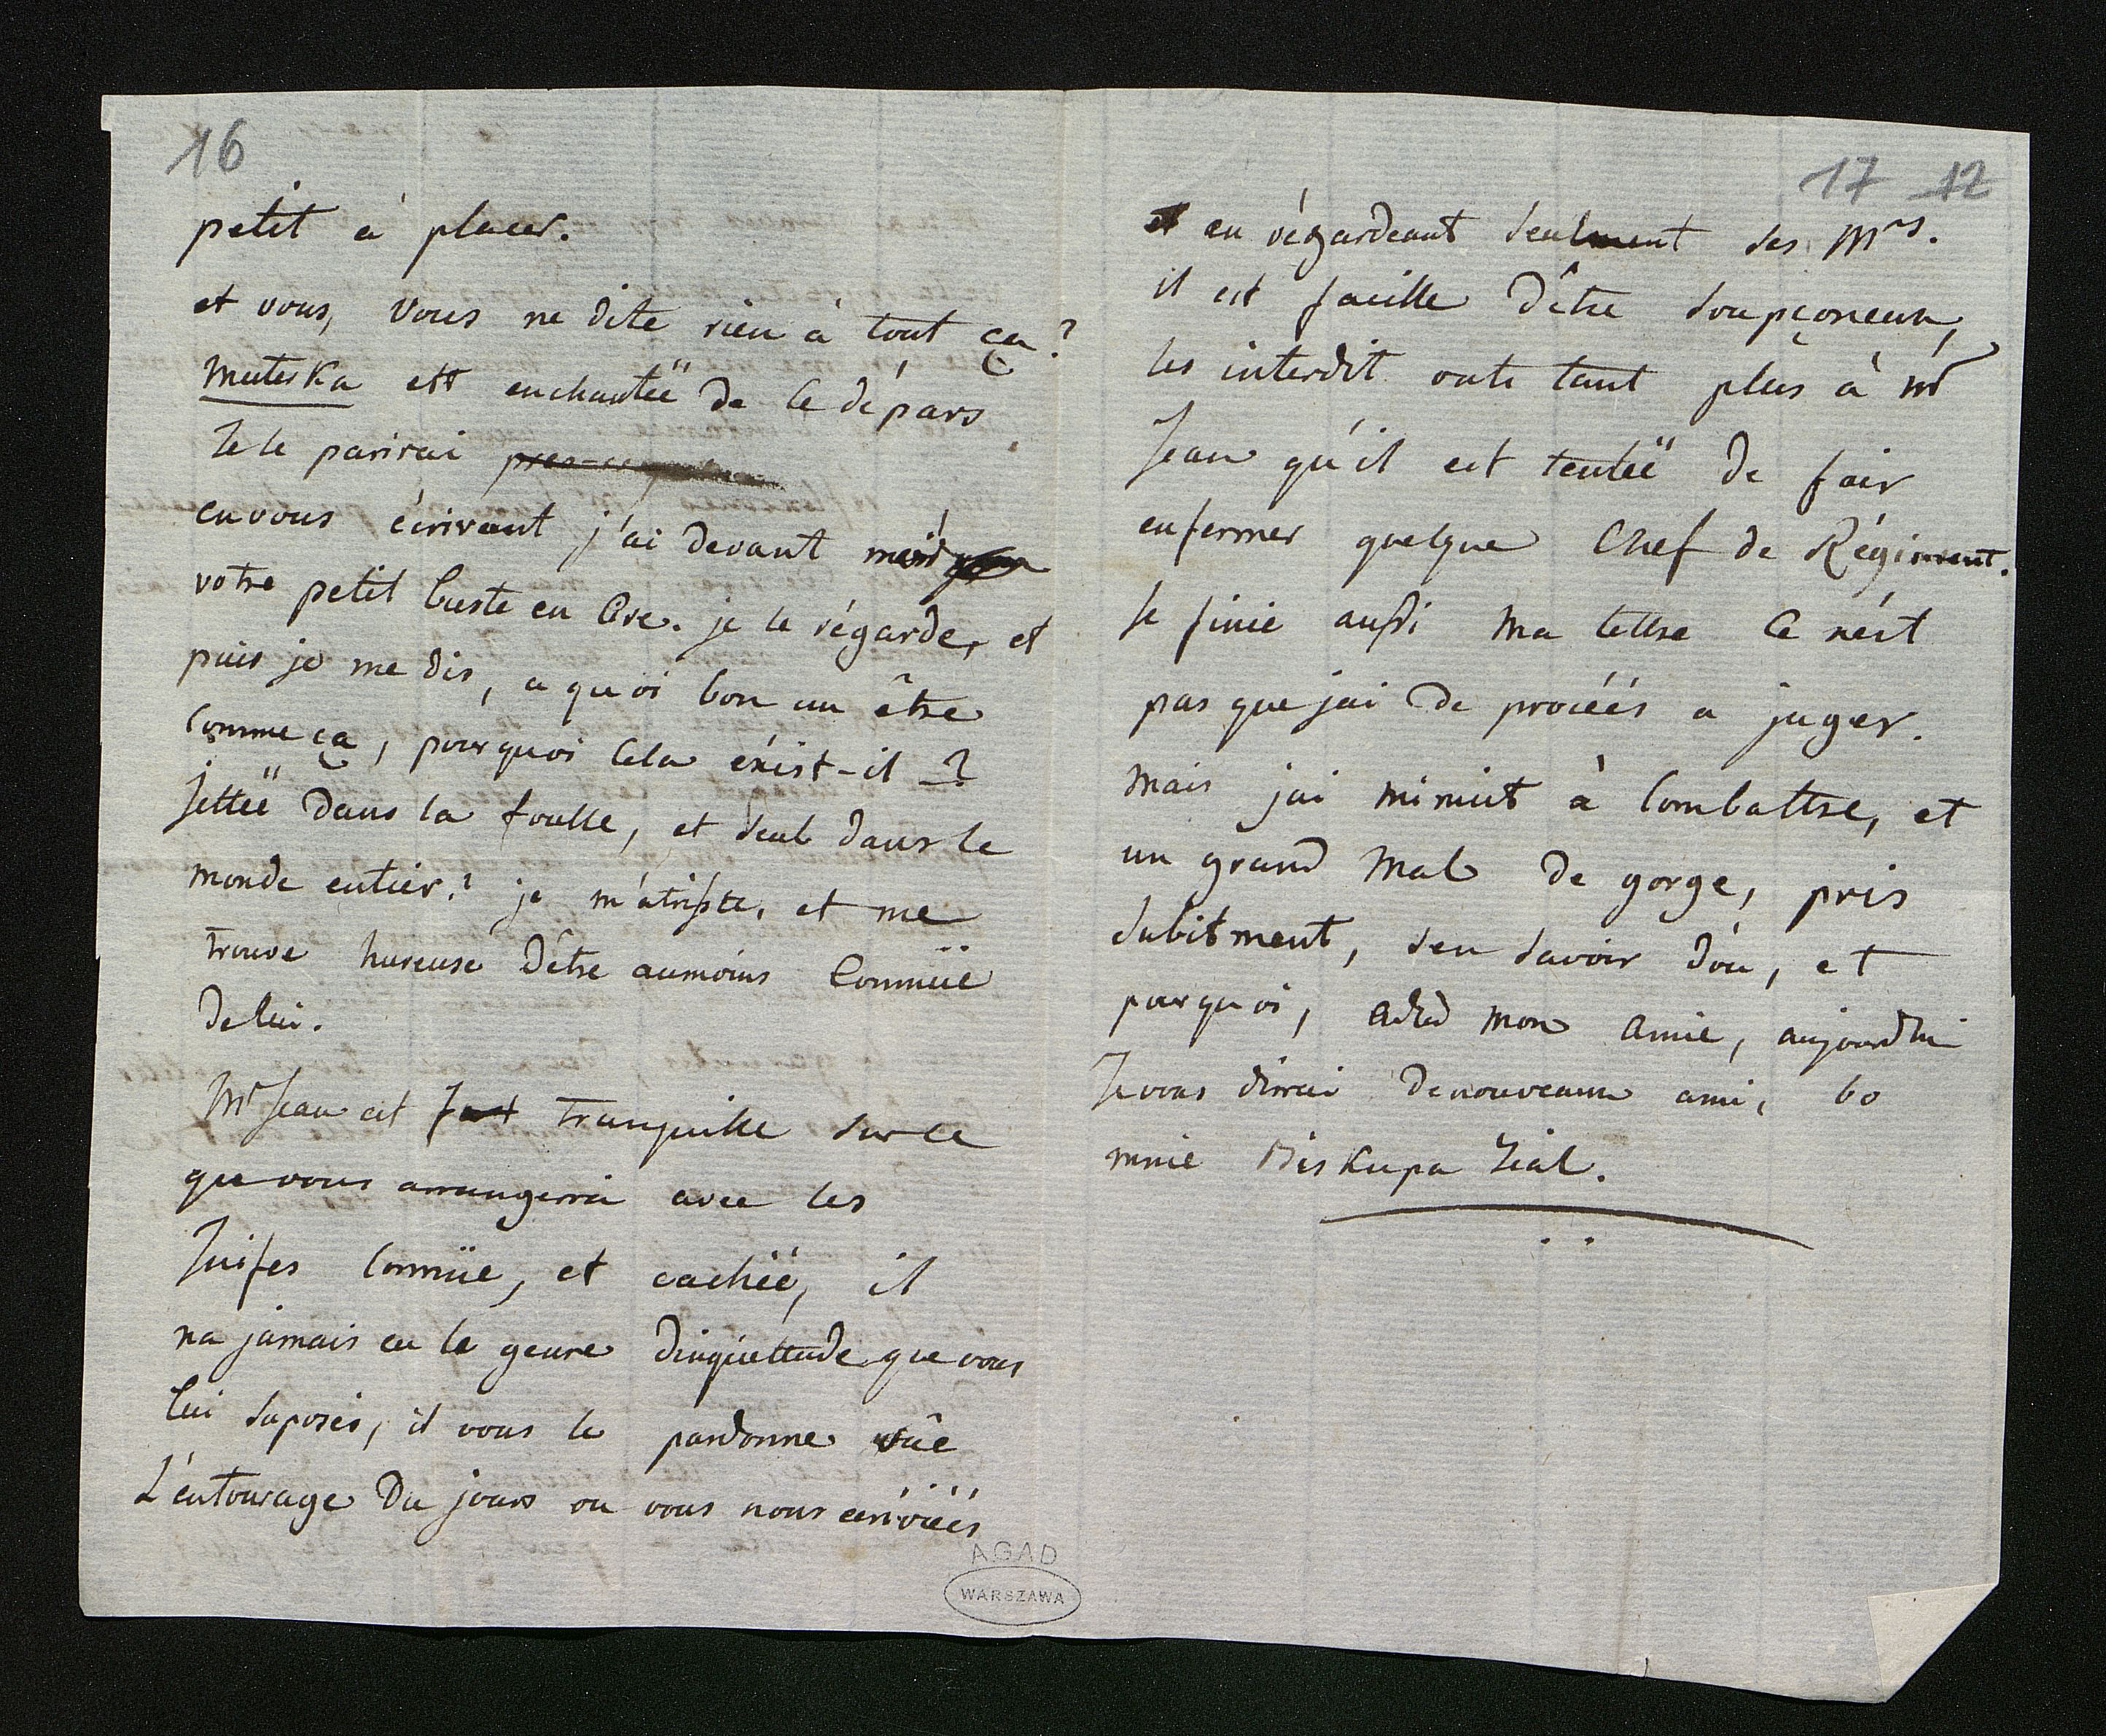 16
petit à placer.
et vous, vous ne dite rien à tout ça?
Muteska est enchantéë de ce dépars
Je le parirai
en vous écrivant j'ai devant moi
votre petit buste en Cire. je le régarde, et
puis je me dis, a quoi bon un être
comme ça, pourquoi cela éxist-il ?
Jettéë dans la foulle, et seul dans le
monde entier? je m'atriste, et me
trouve hureuse d'être aumoins Connüe
de lui.
Mr Jean est fort tranquille sur ce
que vous arrangerai avec les
Juifes Connüe, et cachéé, il
na jamais eu le genre dinquiettude que vous
lui suposés, il vous le pardonne vûe
L'entourage du jours ou vous nous
17 12
et en régardeant seulment ses Mrs.
il est facille d'être soupçoneux,
les interdit oute tant plus à Mr
Jean qu'il est tentéë de fair
enfermer quelque Chef de Régiment.
Je finie aussi ma lettre ce nést
pas que jai de procéés a juger.
mais jai minuit à Combattre, et
un grand mal de gorge, pris
subitment, sen savoir d'ou, et
pourquoi, mon amie, aujourdhui
Je vous dirrai de nouveaux ami, bo
mnie Biskupa żial.
AGAD
WARSZAWA